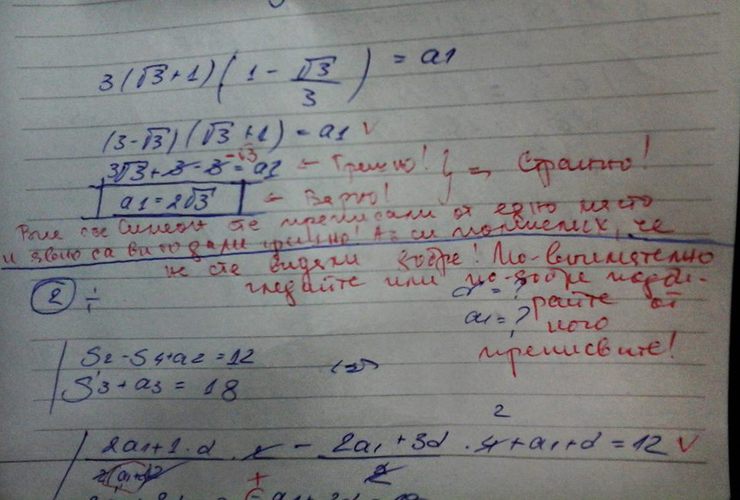 3(√3+1)(1 - √3/3) = a1
(3-√3)(√3+1) = a1 V
3√3+3-3-√3 = a1 ← Грешно! } ⇒ Странно!
a1 = 2√3 ← Вярно!
Вие със Симеон сте преписали от едно място
и двамата са ви го дали грешно! Аз си помислих, че
не сте видели добре! По-внимателно
гледайте или по-добре подби-
② ÷ d = ? райте от
a1 = ? кого
преписвате!
S2 - S4 + a2 = 12 <=>
S3 + a3 = 18
2
2a1+1.d/2 . 2 - 2a1+3d/2 . 4 + a1+d = 12 V